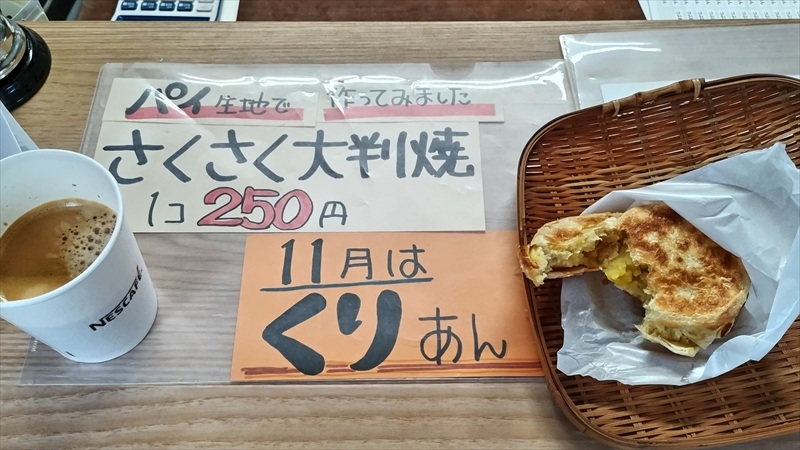 パイ生地で 作ってみました
さくさく大判焼
1コ 250円
11月は
くりあん
NESCAFÉ